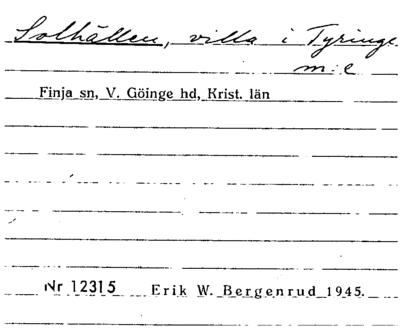 Solhällen, villa i Tyringe
m:e
Finja sn, V. Göinge hd, Krist. län
Nr 12315 Erik W. Bergenrud 1945.